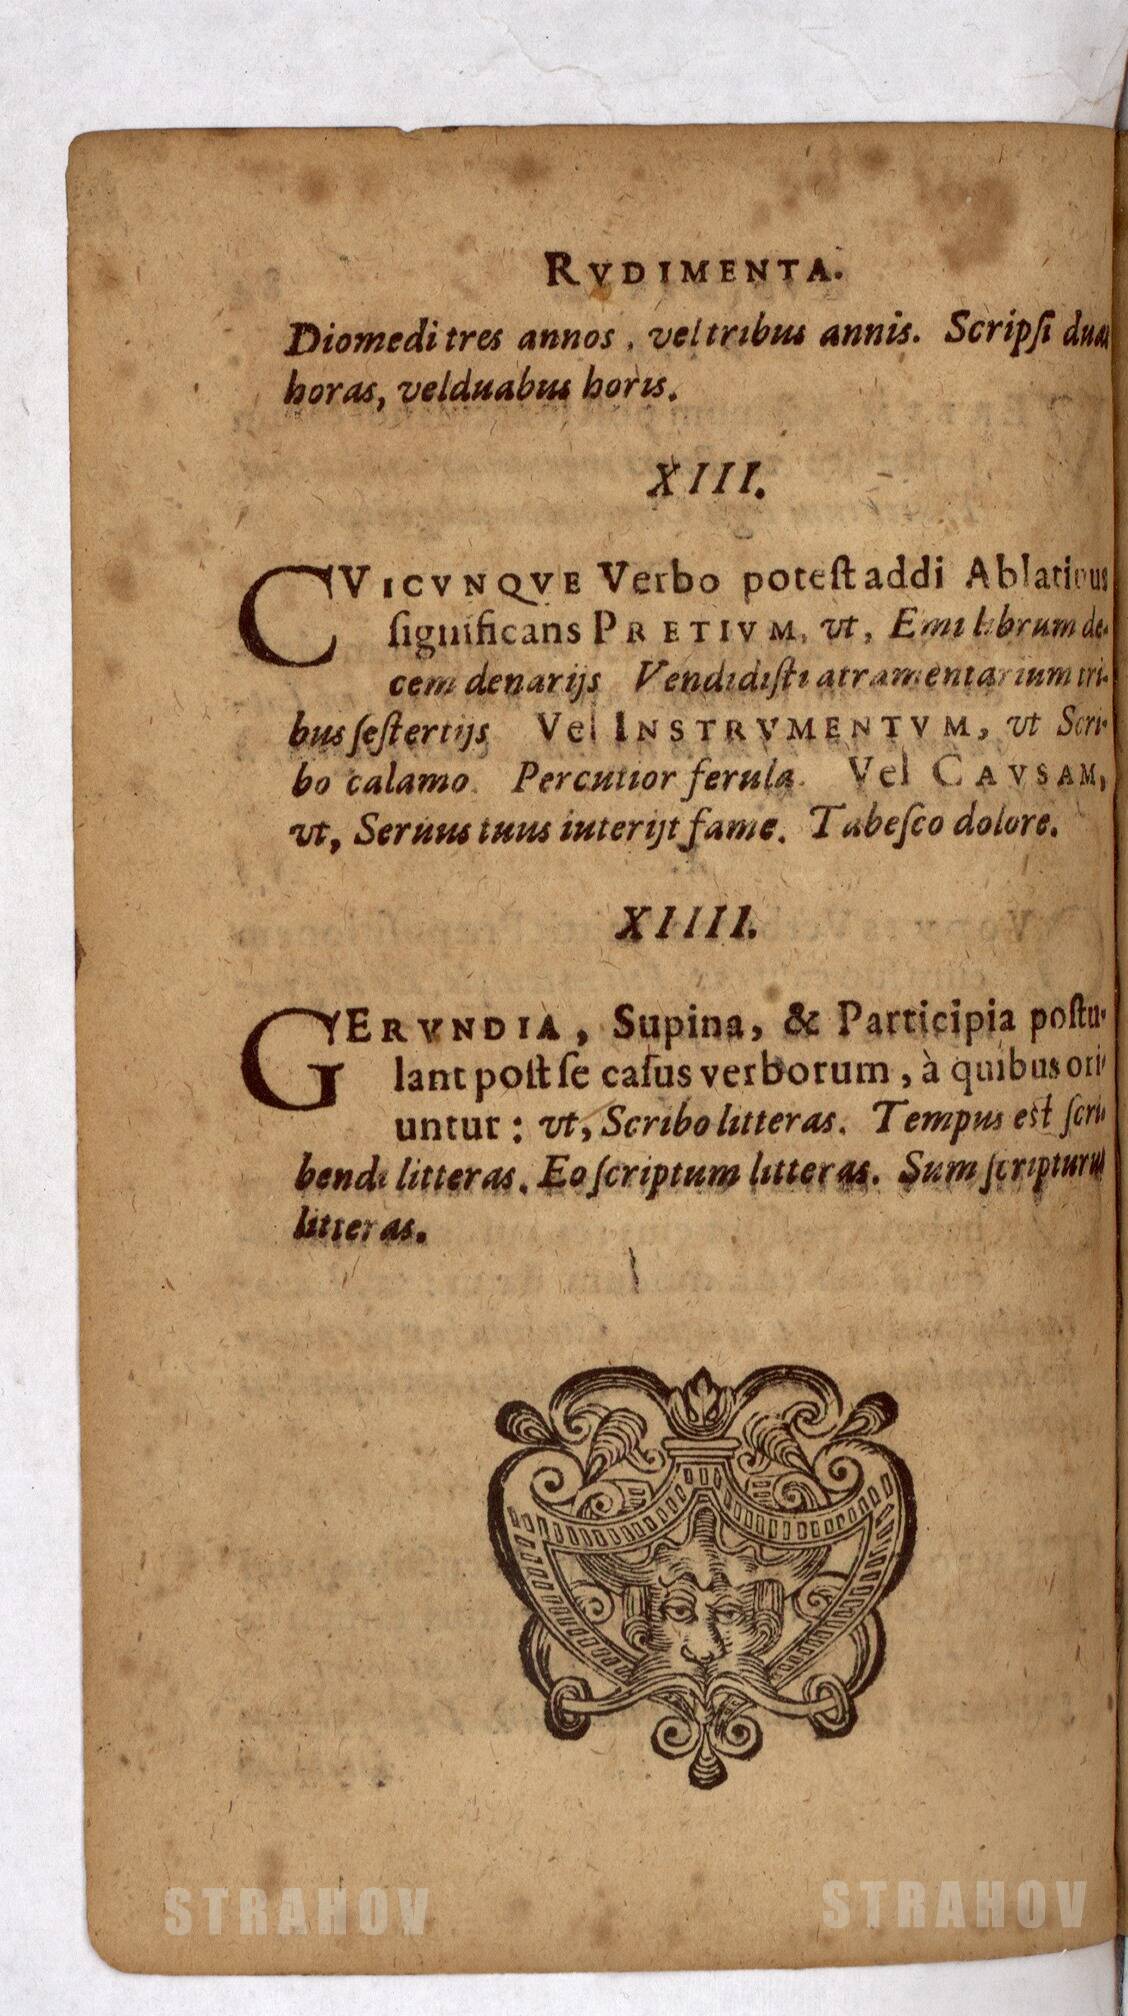 RVDIMENTA.
Diomedi tres annos, vel tribus annis. Scripſi duas
horas, vel duabus horis.
XIII.
CVICVNQVE Verbo poteſt addi Ablatiuus
ſignificans PRETIVM, vt, Emi librum de-
cem denarijs Vendidiſti atramentarium tri-
bus ſeſtertijs Vel INSTRVMENTVM, vt Scri-
bo calamo. Percutior ferula. Vel CAVSAM,
vt, Seruus tuus interijt fame. Tabeſco dolore.
XIIII.
GERVNDIA, Supina, & Participia poſtu-
lant poſt ſe caſus verborum, à quibus ori-
untur: vt, Scribo litteras. Tempus est ſcri-
bendi litteras. Eo ſcriptum litteras. Sum ſcripturus
litteras.
STRAHOV STRAHOV